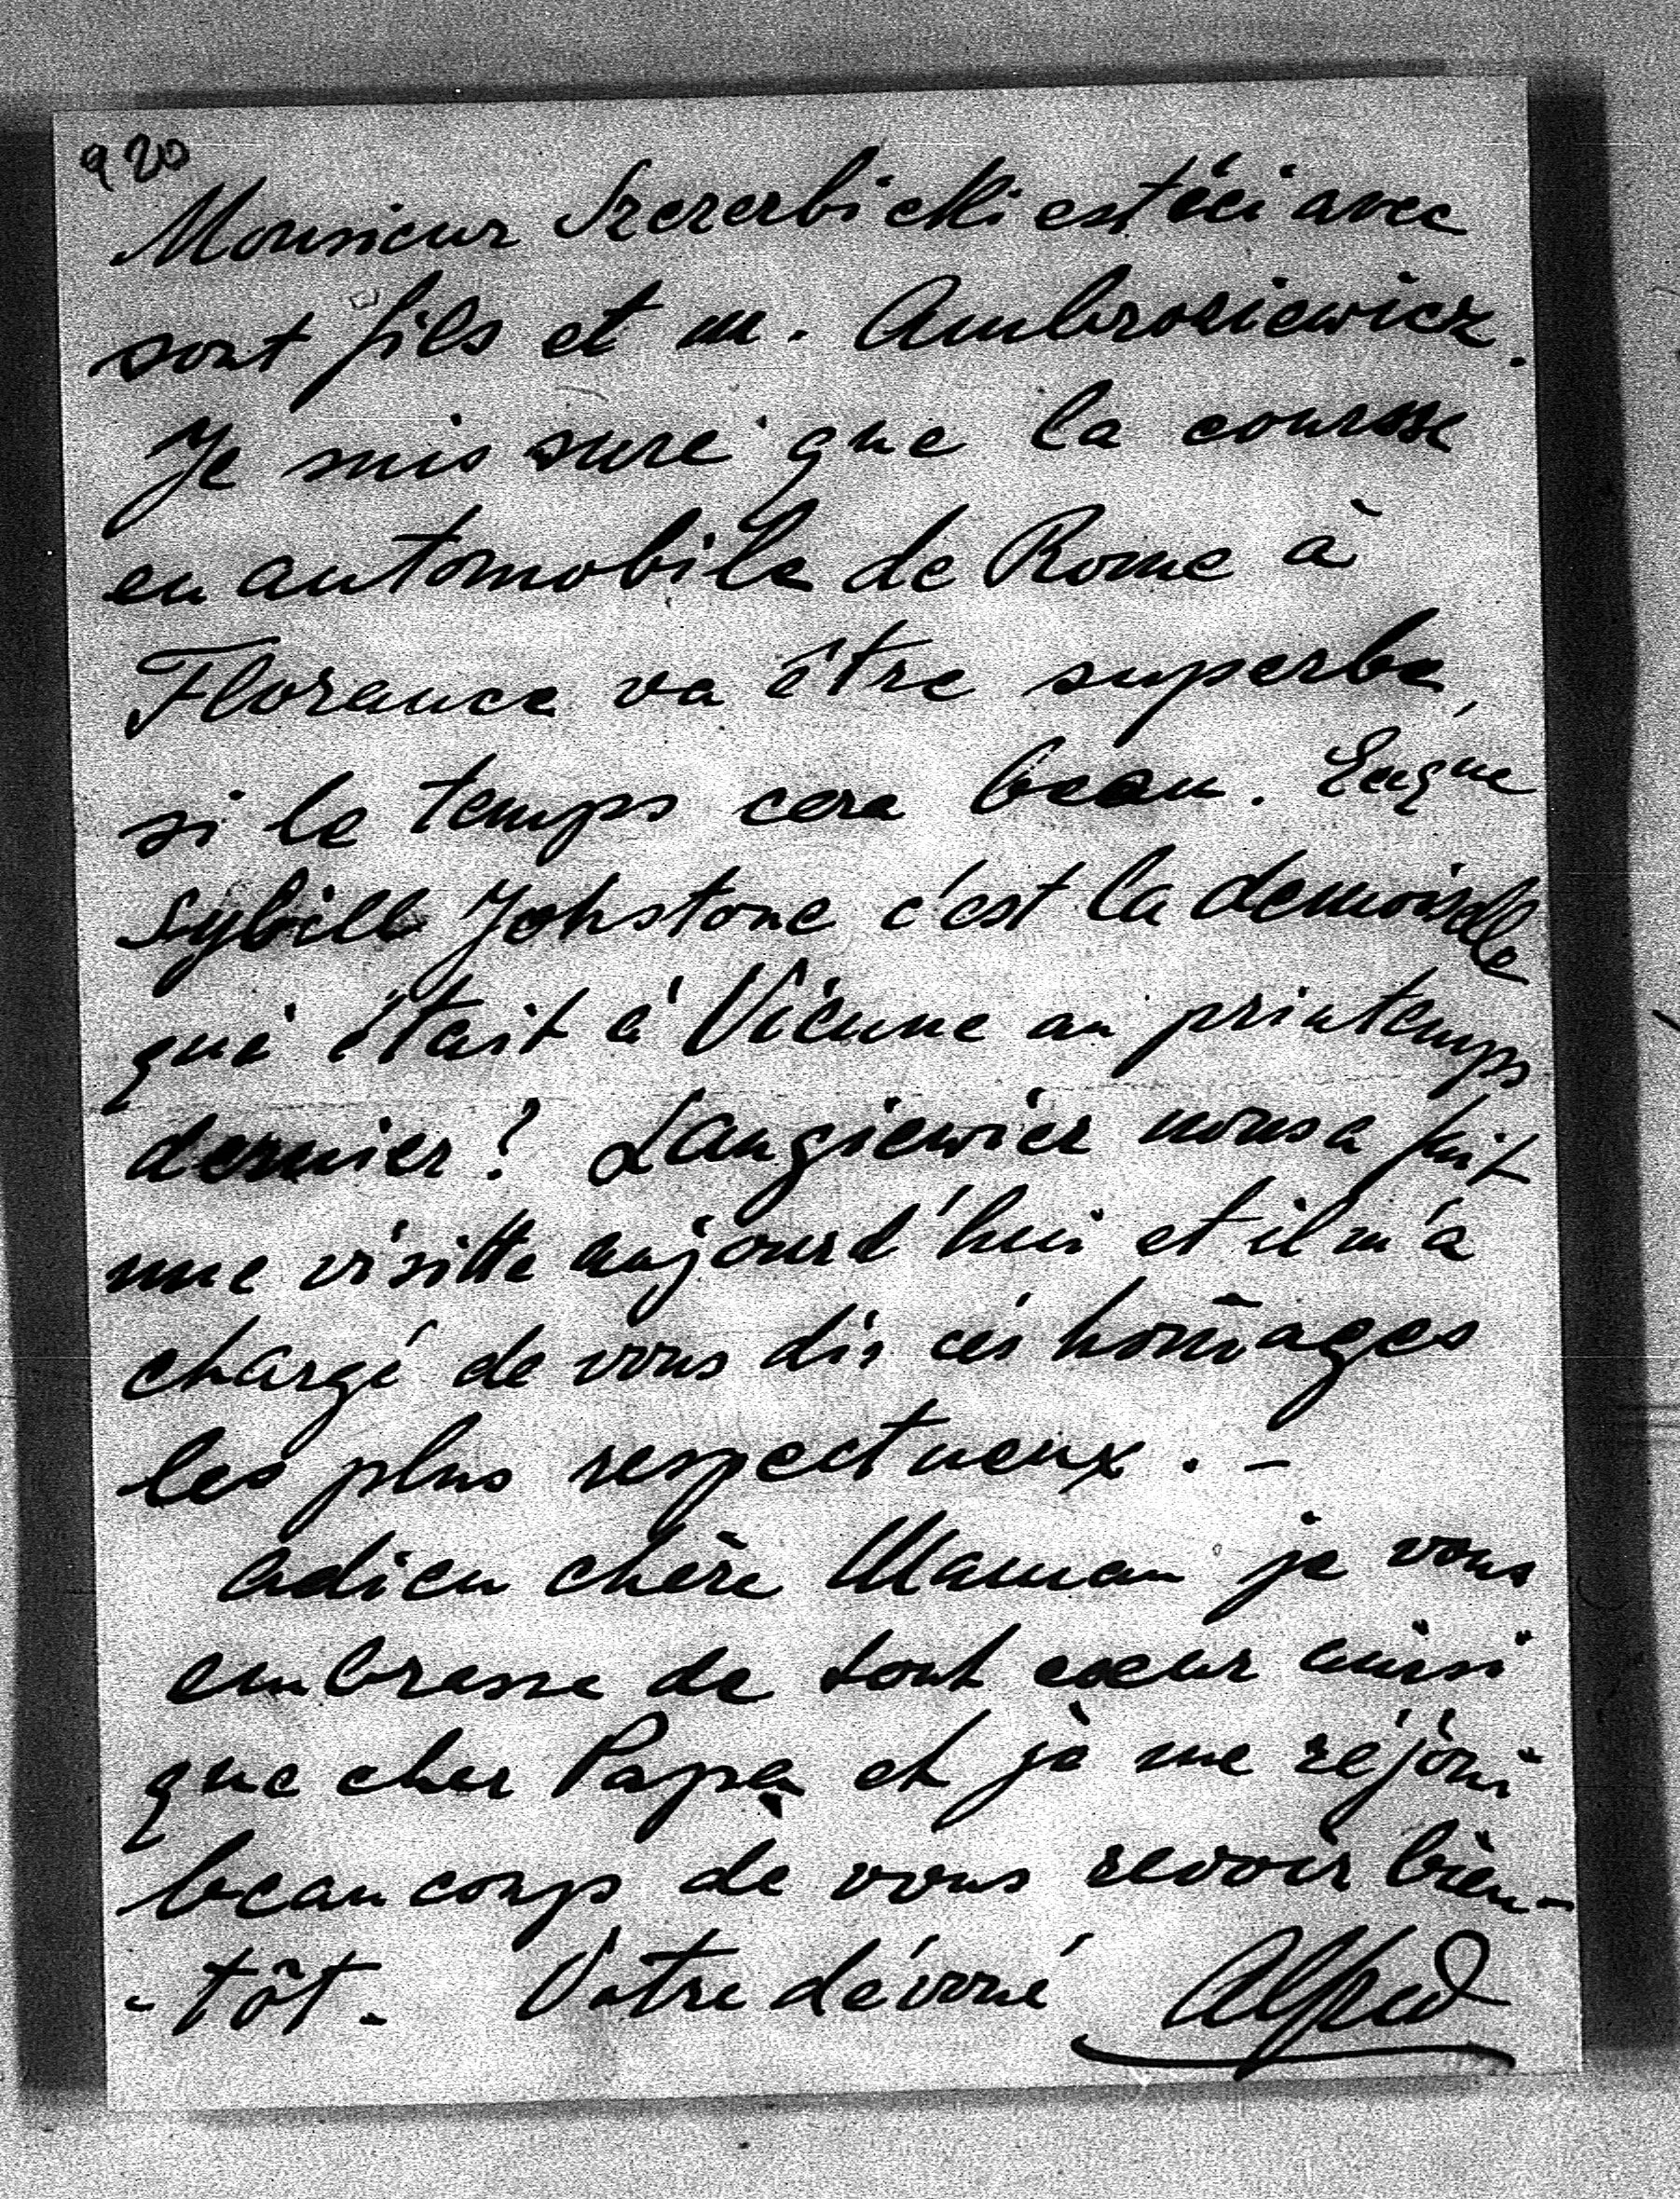 920
Monsieur Szczerbicki est ici avec
sont fils et M. Ambrosiewicz.
Je suis sure que la course
en automobile de Rome à
Florence va être superbe,
si le temps cera beau. Esque
Sybill Johstone c'est la demoiselle
qui était à Vienne au printemps
dernier? Langiewicz nous a fait
une visitte aujourd'hui et il m'a
chargé de vous dir ces homages
les plus respectueux. -
Adieu chère Maman je vous
embrasse de tout coeur ainsi
que cher Papa et je me réjoui
beaucoup de vous revoir bien-
-tôt. Votre dévoué Alfred